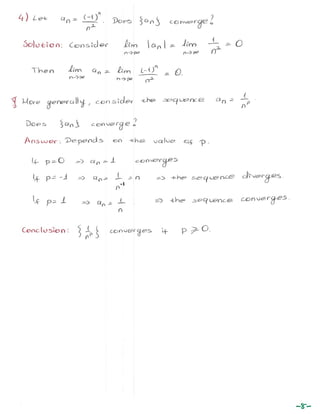 4) Let aₙ = (-1)ⁿ / n². Does {aₙ} converge?
Solution: Consider lim n→∞ |aₙ| = lim n→∞ 1/n² = 0
Then lim n→∞ aₙ = lim n→∞ (-1)ⁿ/n² = 0.
More generally, consider the sequence aₙ = 1/nᵖ.
Does {aₙ} converge?
Answer: Depends on the value of p.
If p=0 ⇒ aₙ = 1 converges
If p=-1 ⇒ aₙ = 1/n⁻¹ = n ⇒ the sequence diverges.
If p=1 ⇒ aₙ = 1/n ⇒ the sequence converges.
Conclusion: {1/nᵖ} converges if p ≥ 0.
-8-